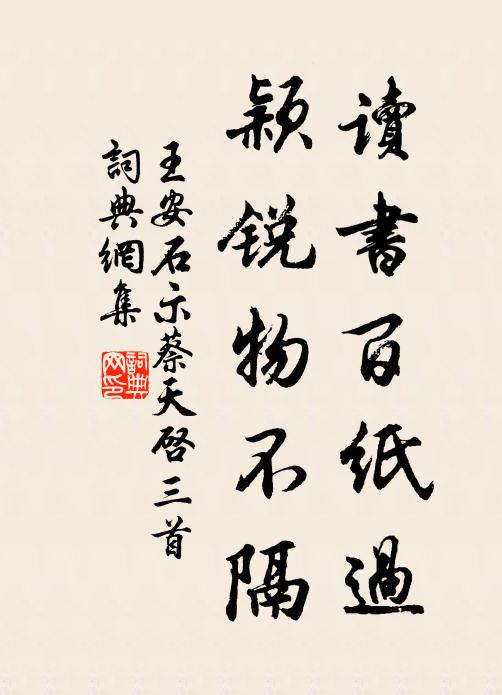 讀書百紙過
穎銳物不隔
王安石示蔡天啓三首
詞典網集
詞典
网印